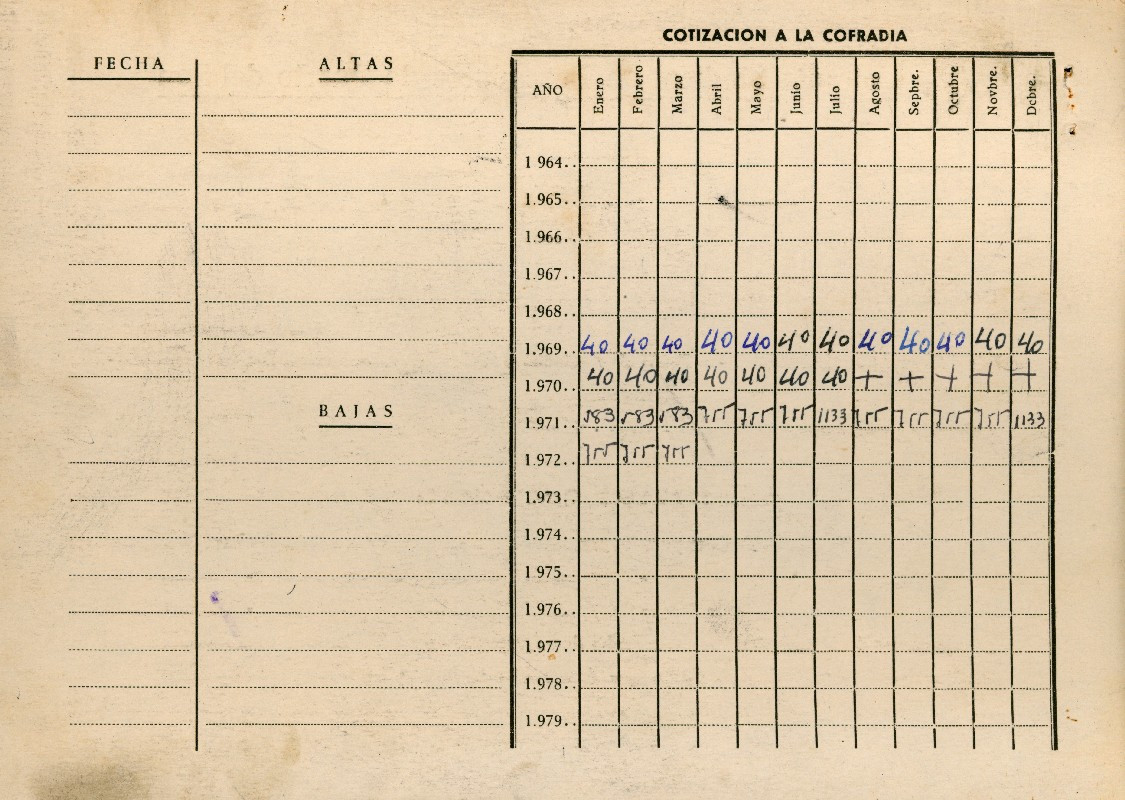 COTIZACION A LA COFRADIA
FECHA ALTAS
AÑO Enero Febrero Marzo Abril Mayo Junio Julio Agosto Sepbre. Octubre Novbre. Dcbre.
1 964..
1.965..
1.966..
1.967..
1.968..
1.969.. 40 40 40 40 40 40 40 40 40 40 40 40
1.970.. 40 40 40 40 40 40 40 + + + + +
BAJAS
1.971.. 583 583 583 755 755 755 1133 755 755 755 755 1133
1.972.. 755 755 755
1.973..
1.974..
1.975..
1.976..
1.977..
1.978..
1.979..